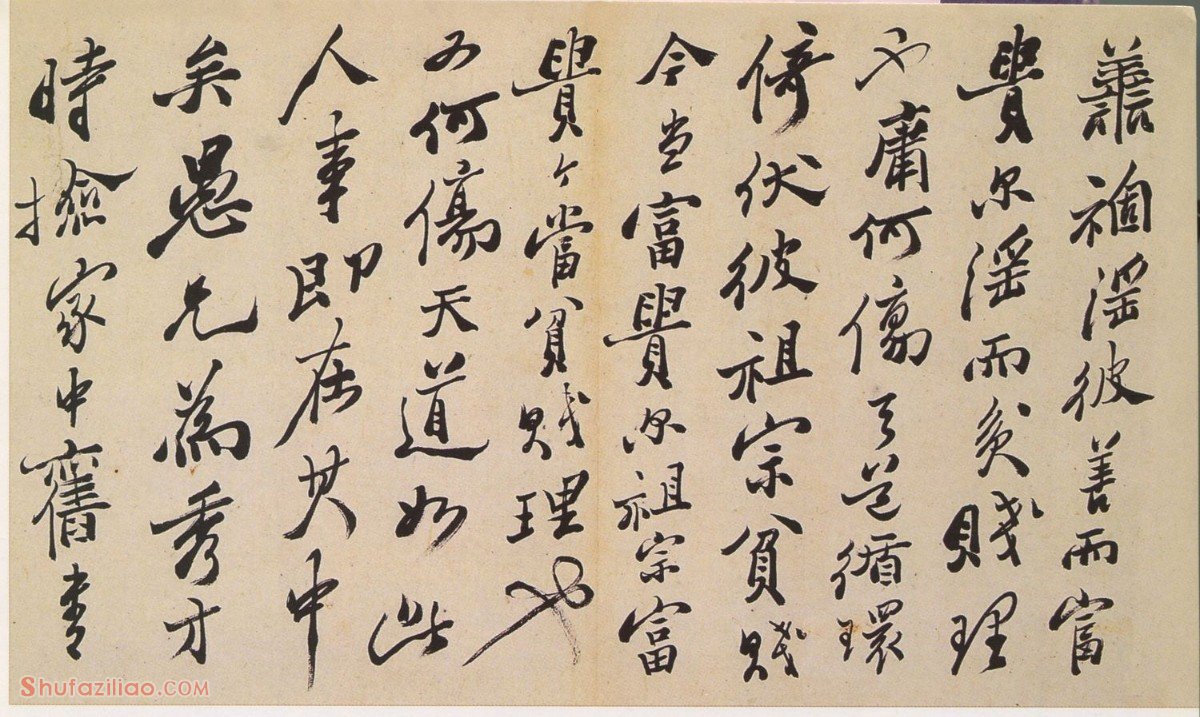 譱禍淫彼善而富
貴尔淫而貧賤理
也庸何傷天道循環
倚伏彼祖宗貧賤
今當富貴尔祖宗富
貴今當貧賤理也
又何傷天道如此
人事即在其中
矣愚兄為秀才
時撿家中舊書
Shufaziliao.COM